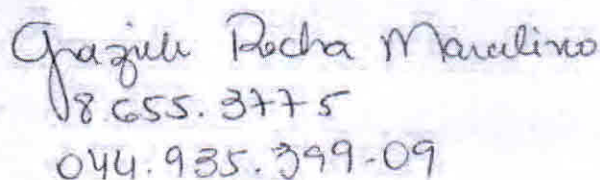 Graziele Rocha Marcelino
8.655.3775
044.935.399-09